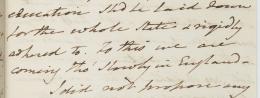 education shd be laid down
for the whole State & rigidly
adhered to. To this we are
coming tho' slowly in England.
I did not propose any